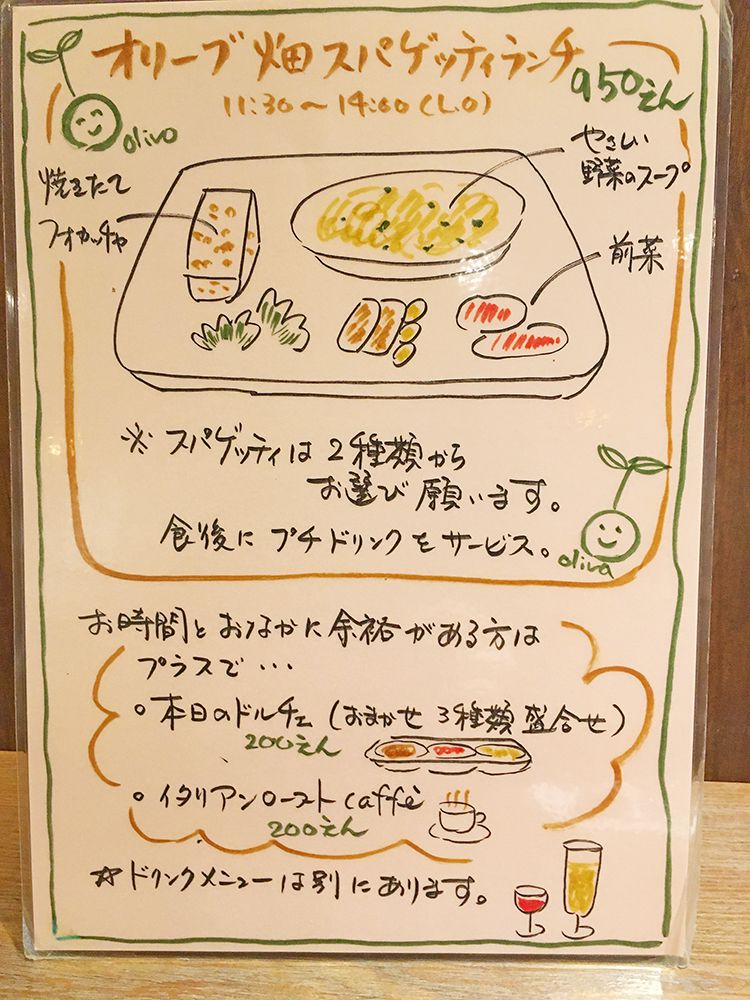 オリーブ畑スパゲッティランチ
950えん
11:30~14:00(L.O)
olivo
焼きたて
フォカッチャ
やさしい
野菜のスープ
前菜
※スパゲッティは2種類から
お選び願います。
食後にプチドリンクをサービス。
oliva
お時間とおなかに余裕がある方は
プラスで・・・
○本日のドルチェ(おまかせ3種類盛合せ)
200えん
○イタリアンローストcaffé
200えん
☆ドリンクメニューは別にあります。